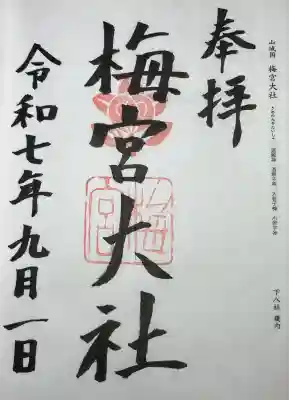 山城国 梅宮大社
下八社 畿内
奉拝
梅宮大社
梅宮
令和七年九月一日